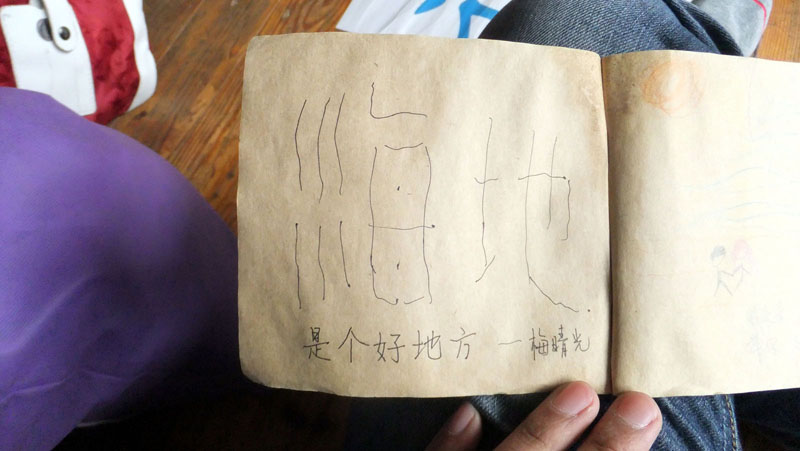 地
是个好地方 —梅晴光